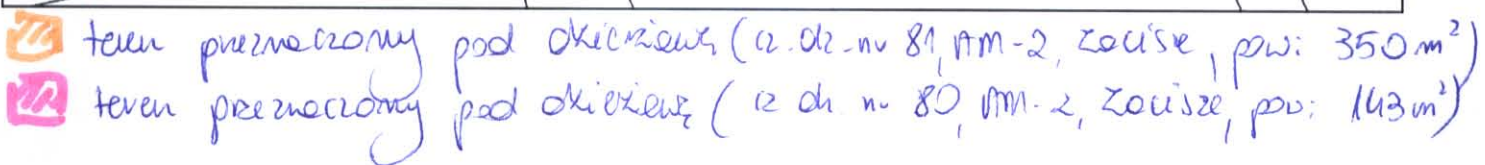 teren przeznaczony pod dzierżawę (cz. dz. nr 81, AM-2, Zacisze, pow: 350 m²)
teren przeznaczony pod dzierżawę (cz dz. nr 80, AM-2, Zacisze, pow: 143 m²)